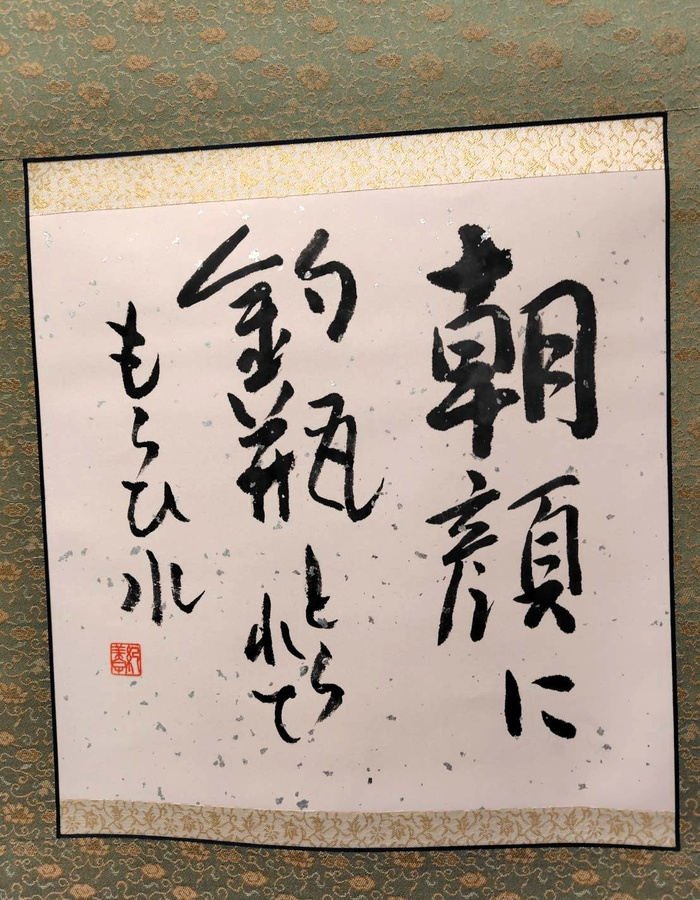 朝顔に
釣瓶とられて
もらひ水